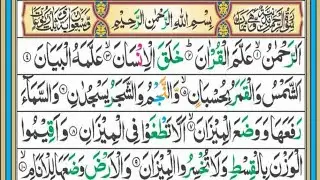 بِسْمِ اللّٰهِ الرَّحْمٰنِ الرَّحِيْمِ
اَلرَّحْمٰنُ ۙ عَلَّمَ الْقُرْاٰنَ ؕ خَلَقَ الْاِنْسَانَ ۙ عَلَّمَهُ الْبَيَانَ
اَلشَّمْسُ وَالْقَمَرُ بِحُسْبَانٍ ۙ وَّالنَّجْمُ وَالشَّجَرُ يَسْجُدٰنِ وَالسَّمَآءَ
رَفَعَهَا وَوَضَعَ الْمِيْزَانَ ۙ اَلَّا تَطْغَوْا فِى الْمِيْزَانِ وَاَقِيْمُوا
الْوَزْنَ بِالْقِسْطِ وَلَا تُخْسِرُوا الْمِيْزَانَ وَالْاَرْضَ وَضَعَهَا لِلْاَنَامِ